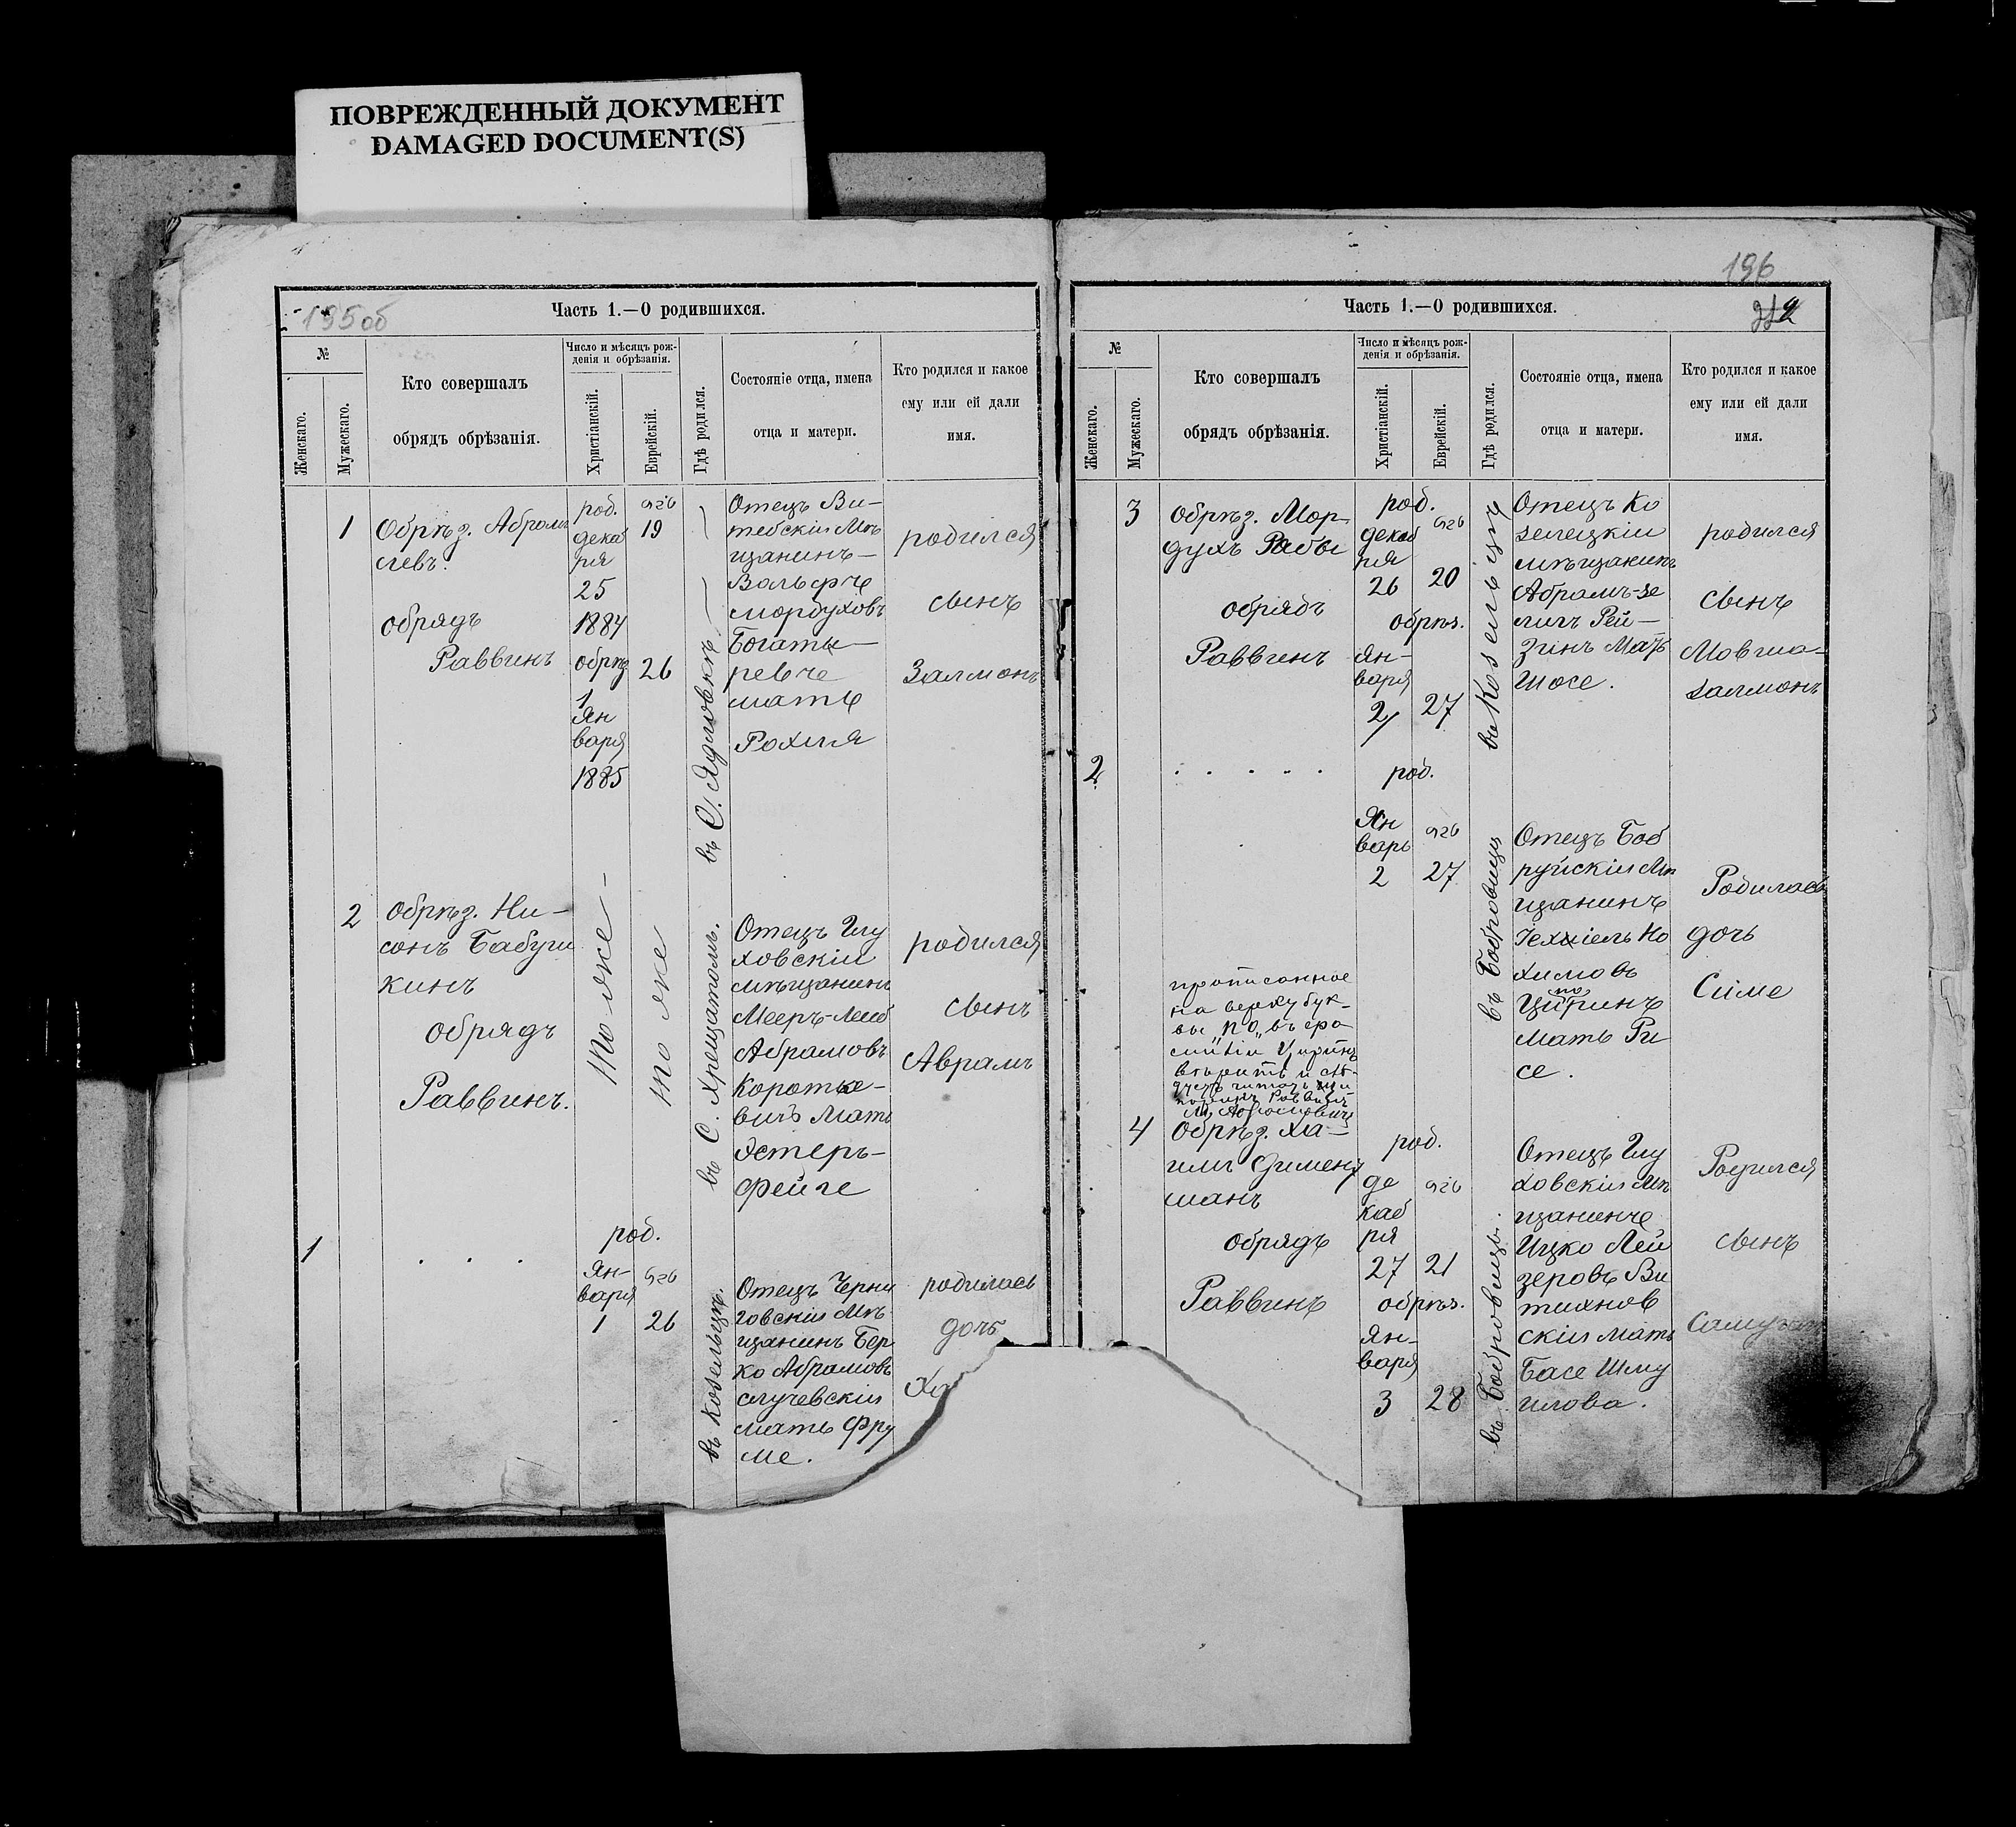 ПОВРЕЖДЕННЫЙ ДОКУМЕНТ
DAMAGED DOCUMENT(S)
195об
Часть 1.—О родившихся.
№
Женскаго.
Мужескаго.
Кто совершалъ
обрядъ обрѣзанія.
Число и мѣсяцъ рож-
денія и обрѣзанія.
Христіанскій.
Еврейскій.
Гдѣ родился.
Состояніе отца, имена
отца и матери.
Кто родился и какое
ему или ей дали
имя.
1
Обрѣз. Абрамъ
левъ.
обрядъ
Раввинъ
род.
декаб
ря
25
1884
обрѣз
1
Ян
варя
1885
19
26
въ С. Ядловкѣ
Отецъ Ви-
тебскій Мѣ
щанинъ
Вольфъ
Мордуховъ
Богаты
ревъ
мать
Рохля
родился
сынъ
Залмонъ
2
Обрѣз. Ни-
сонъ Бабуш
кинъ
обрядъ
Раввинъ.
то же
то же
въ С. Хрещатомъ.
Отецъ Глу
ховскій
мѣщанинъ
Мееръ-Лейб
Абрамовъ
Коротке-
вичъ Мать
Эстеръ-
Фейге
родился
сынъ
Аврамъ
1
. . .
род.
Ян-
варя
1
26
въ Козельцѣ.
Отецъ Черни
говскій Мѣ
щанинъ Бер
ко Абрамовъ
Случевскій
мать Фру
ме.
родилась
дочь
Ха
196
Часть 1.—О родившихся.
№
Женскаго.
Мужескаго.
Кто совершалъ
обрядъ обрѣзанія.
Число и мѣсяцъ рож-
денія и обрѣзанія.
Христіанскій.
Еврейскій.
Гдѣ родился.
Состояніе отца, имена
отца и матери.
Кто родился и какое
ему или ей дали
имя.
3
Обрѣз. Мор-
духъ Рабы
обрядъ
Раввинъ
род.
декаб
ря
26
20
обрѣз.
Ян-
варя
2
27
въ Козельцѣ
Отецъ Ко
зелецкій
мѣщанинъ
Абрамъ-зе
ликъ Рей-
зинъ Мать
Шосе.
родился
сынъ
Мовша-
Залмонъ
2
. . . . .
род.
Ян
варь
2
27
въ Бобровицѣ
Отецъ Боб
руйскій Мѣ
щанинъ
Іехіель Но
химовъ
по
Циринъ
Мать Ри
се.
Родилась
дочь
Симе
прописанное
на верху бук-
вы „по„ въ фа
миліи Циринъ
Раввинъ
4
Обрѣз. Ха-
имъ Димент
манъ
обрядъ
Раввинъ
род.
де
каб
ря
27
21
обрѣз.
Ян-
варя
3
28
въ Бобровицѣ.
Отецъ Глу
ховскій Мѣ
щанинъ
Ицко Лей
зеровъ Ви
тихнов
скій Мать
Басе Шму
илова.
Родился
сынъ